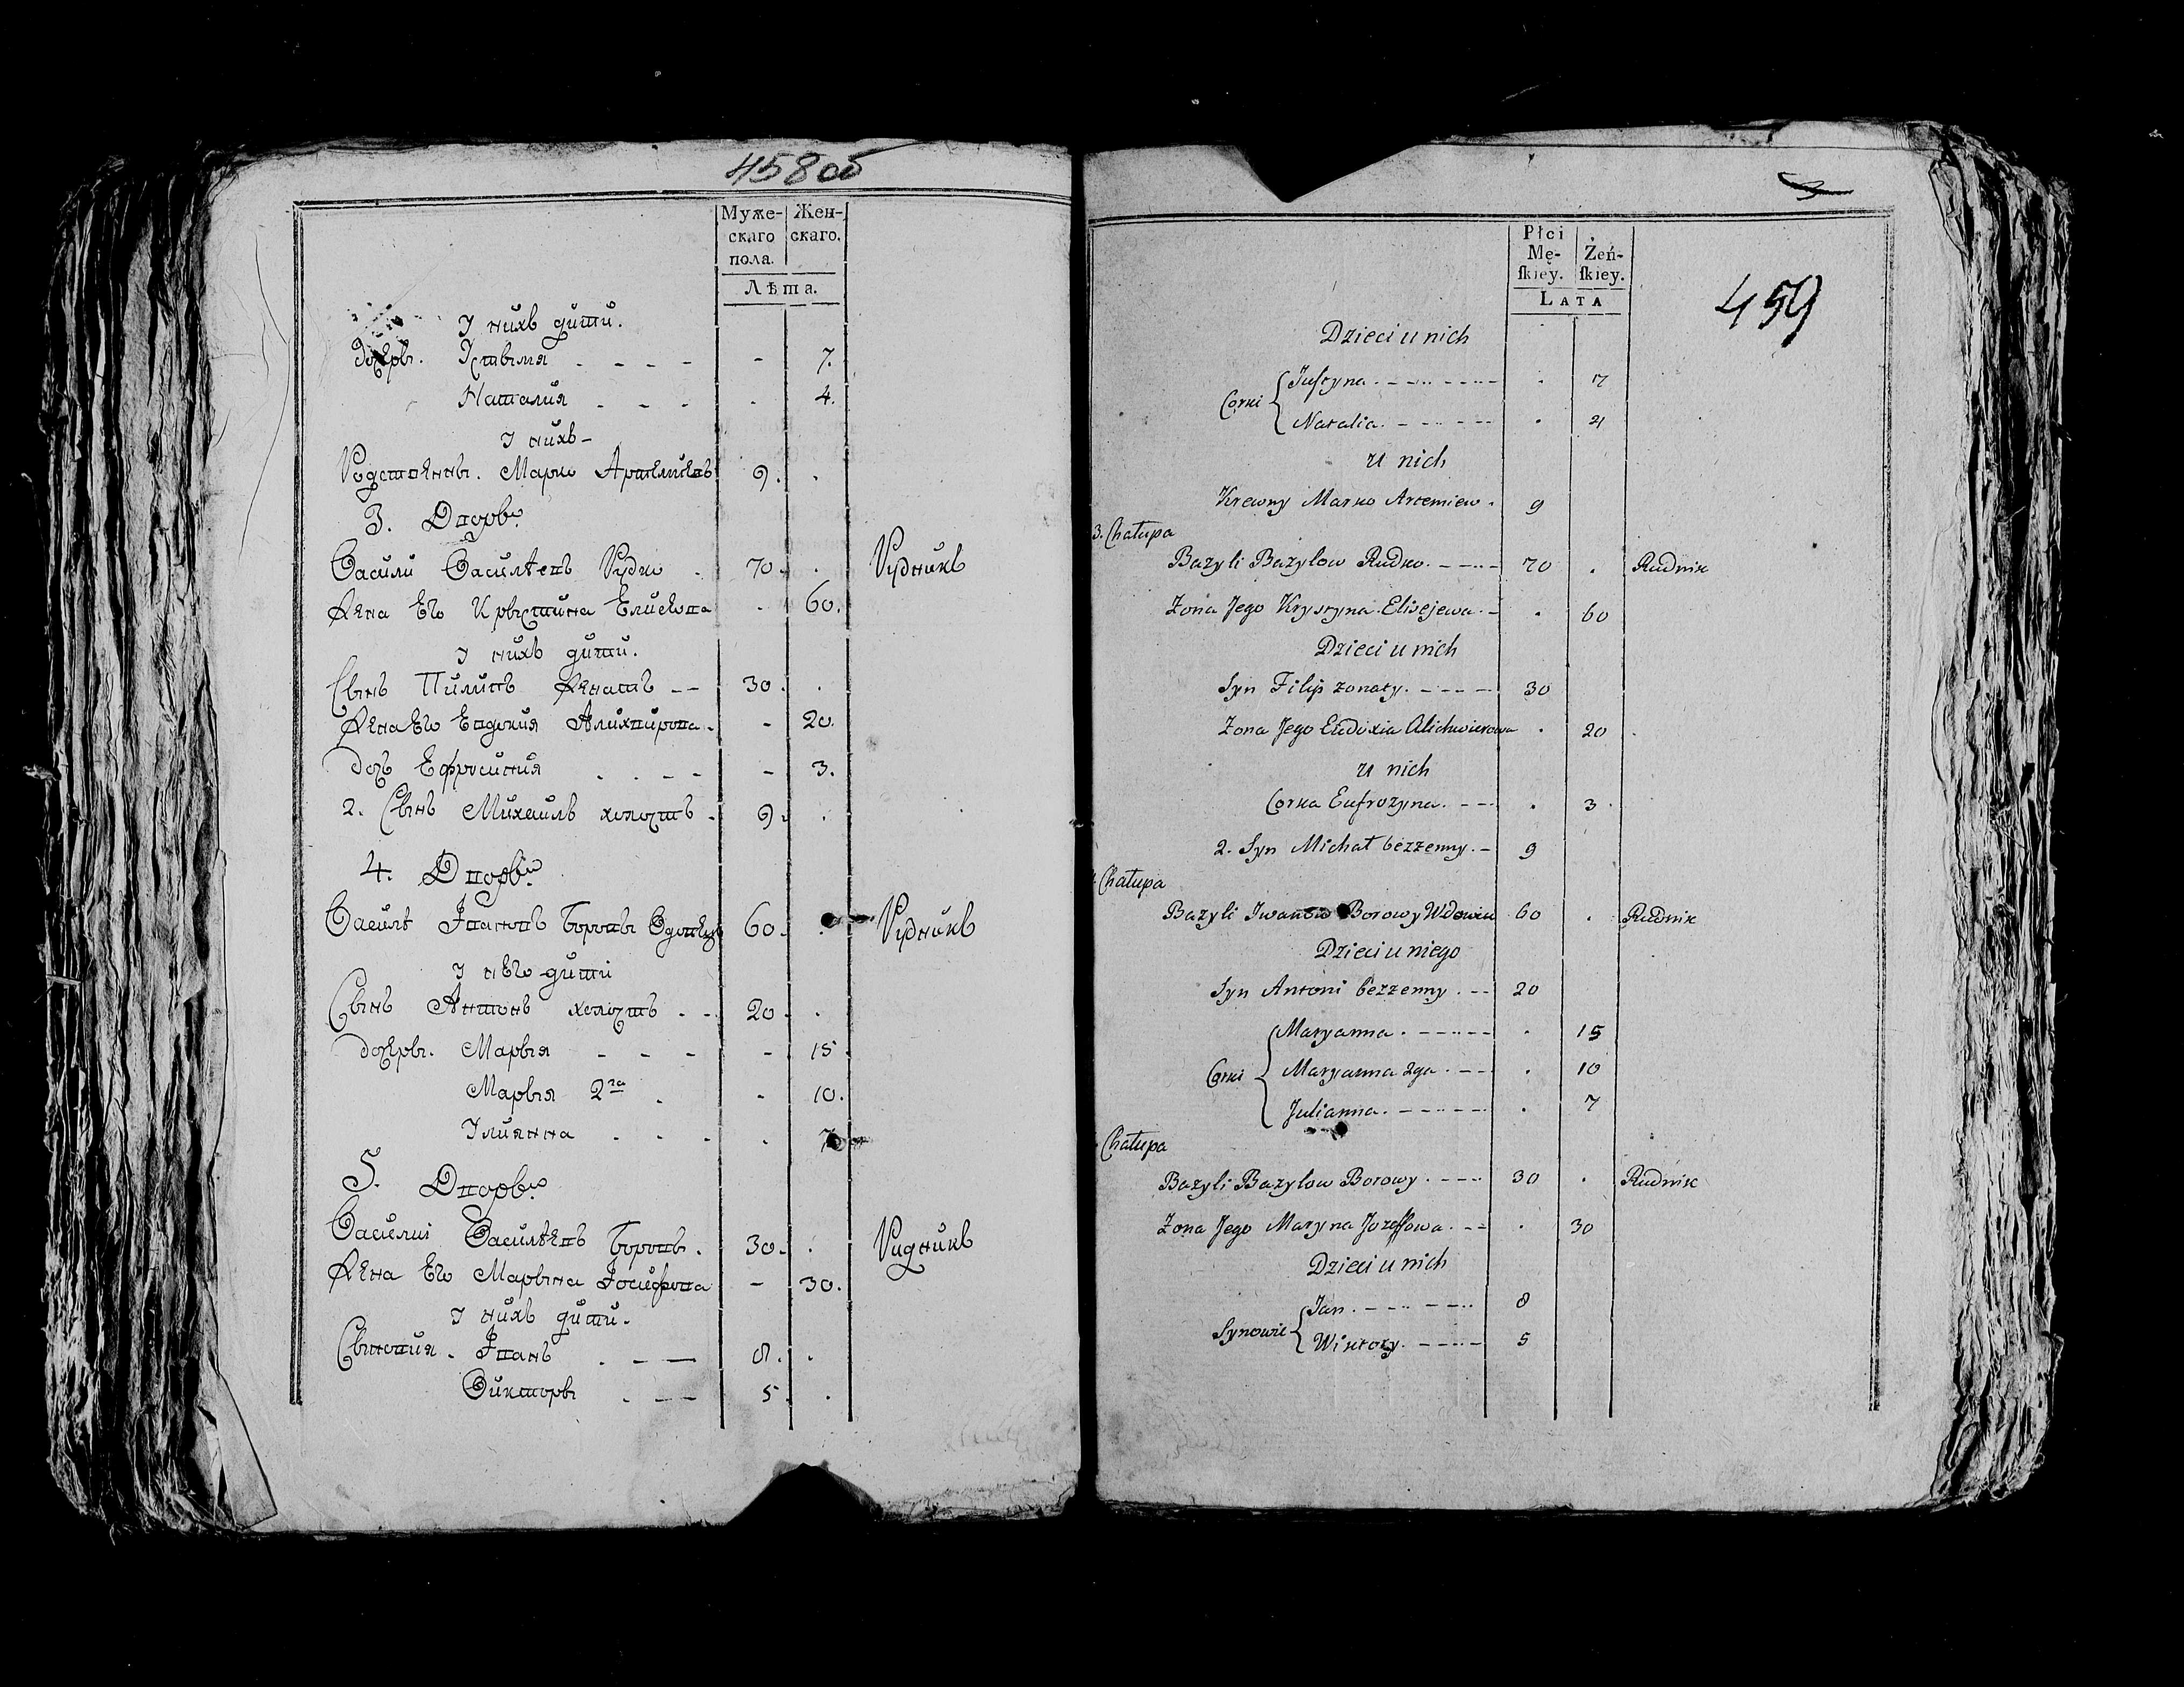 458 об
Муже-
скаго
пола.
Жен-
скаго.
Лѣта.
У нихъ дити.
Дочеры. Устыма - - - - - 7.
Наталия - - - - 4.
У нихъ -
Родственны. Марко Артемиевъ 9.
3. Дворъ
Васили Василѣевъ Рудко 70. Рудникъ
Жена Его Крыстина Елисеева - 60.
У нихъ дити.
Сынъ Пилипъ Женатъ -- 30.
Жена Его Евдокия Алихвирова - 20.
Дочъ Ефросиния - - - 3.
2. Сынъ Михаилъ холостъ 9.
4. Дворъ
Василѣ Івановъ Боровы Вдовецъ 60. Рудникъ
У него дити
Сынъ Антонъ холостъ 20.
Дочеры. Марыя - - - - 15
Марыя 2га - 10.
Улиянна 7
5. Дворъ
Василиі Василѣевъ Боровы. 30. Рудникъ
Жена Его Марына Іосифова - 30.
У нихъ дити.
Сыновия. Іванъ - - 8.
Викторы - - 5.
459
Płci
Mę-
ſkiey.
Żeń-
ſkiey.
Lata
Dzieci u nich
Corki
Justyna - - - - - 7
Natalia - - - - - 4
u nich
Krewny Marko Artemiew. 9
3. Chałupa
Bazyli Bazylow Rudko - - - 70 Rudnik
Zona Jego Krystyna Elisejewa - 60
Dzieci u nich
Syn Filip zonaty - - - 30
Zona Jego Eudoxia Alichwierowa 20
u nich
Corka Eufrozyna - - 3
2. Syn Michał bezzenny - 9
Chałupa
Bazyli Iwanow Borowy Wdowiec 60 Rudnik
Dzieci u niego
Syn Antoni bezzenny - - 20
Corki
Maryanna - - - - - 15
Maryanna 2ga - - 10
Julianna - - - - - 7
Chałupa
Bazyli Bazylow Borowy - - - 30 Rudnik
Zona Jego Maryna Jozeffowa - - 30
Dzieci u nich
Synowie
Jan - - - - - 8
Wiktory - - - - 5